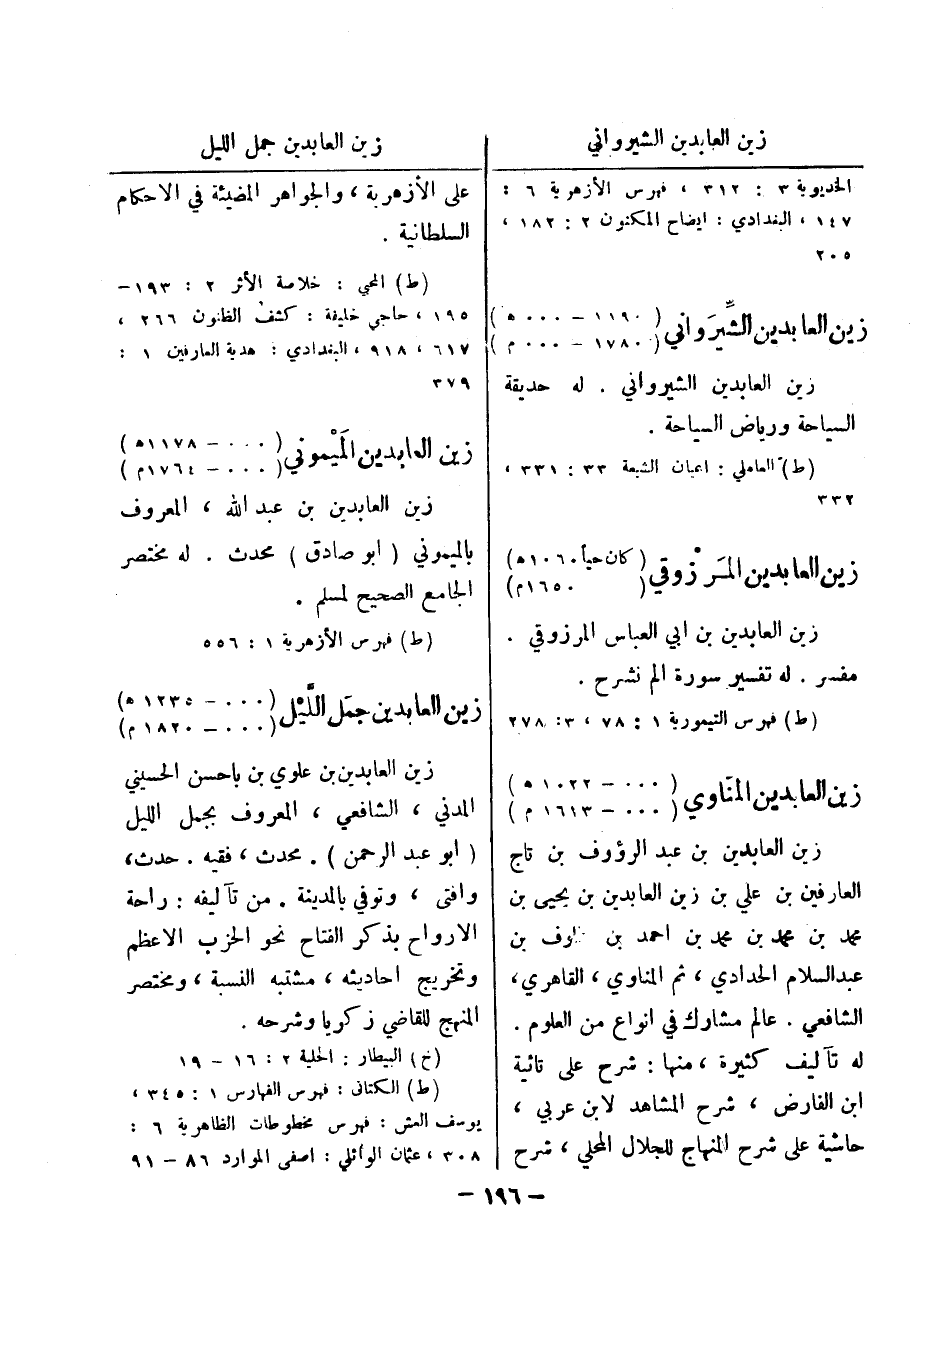 زين العابدين الشيرواني
الخديوية ٣ : ٣١٢ ، فهرس الأزهرية ٦ :
١٤٧ ، البغدادي : ايضاح المكنون ٢ : ١٨٢ ،
٢٠٥
زين العابدين الشِّيرَواني ( ١١٩٠ – ٠٠٠ ه )
( ١٧٨٠ – ٠٠٠ م )
زين العابدين الشيرواني . له حديقة
السياحة ورياض السياحة .
(ط) العاملي : اعيان الشيعة ٣٣ : ٣٣١ ،
٣٣٢
زين العابدين المَرْزوقي ( كان حياً ١٠٦٠ ه )
( ١٦٥٠ م )
زين العابدين بن ابي العباس المرزوقي .
مفسر . له تفسير سورة الم نشرح .
(ط) فهرس التيمورية ١ : ٧٨ ، ٣ : ٢٧٨
زين العابدين المنَاوي ( ٠٠٠ – ١٠٢٢ ه )
( ٠٠٠ – ١٦١٣ م )
زين العابدين بن عبد الرؤوف بن تاج
العارفين بن علي بن زين العابدين بن يحيى بن
محمد بن محمد بن محمد بن احمد بن بن
عبدالسلام الحدادي ، ثم المناوي ، القاهري ،
الشافعي . عالم مشارك في انواع من العلوم .
له تآليف كثيرة ، منها : شرح على تائية
ابن الفارض ، شرح المشاهد لابن عربي ،
حاشية على شرح المنهاج للجلال المحلي ، شرح
زين العابدين جمل الليل
على الأزهرية ، والجواهر المضيئة في الاحكام
السلطانية .
(ط) المحبي : خلاصة الأثر ٢ : ١٩٣–
١٩٥ ، حاجي خليفة : كشف الظنون ٢٦٦ ،
٦١٧ ، ٩١٨ ، البغدادي : هدية العارفين ١ :
٣٧٩
زين العابدين المَيْموني ( ٠٠٠ – ١١٧٨ ه )
( ٠٠٠ – ١٧٦٤ م )
زين العابدين بن عبد الله ، المعروف
بالميموني ( ابو صادق ) محدث . له مختصر
الجامع الصحيح لمسلم .
(ط) فهرس الأزهرية ١ : ٥٥٦
زين العابدين جمَل اللَّيْل ( ٠٠٠ – ١٢٣٥ ه )
( ٠٠٠ – ١٨٢٠ م )
زين العابدين بن علوي بن باحسن الحسيني
المدني ، الشافعي ، المعروف بجمل الليل
( ابو عبد الرحمن ) . محدث ، فقيه . حدث ،
وافتى ، وتوفي بالمدينة . من تآليفه : راحة
الارواح بذكر الفتاح نحو الحزب الاعظم
وتخريج احاديثه ، مشتبه النسبة ، ومختصر
المنهج للقاضي زكريا وشرحه .
(خ) البيطار : الحلية ٢ : ١٦ – ١٩
(ط) الكتاني : فهرس الفهارس ١ : ٣٤٥ ،
يوسف العش : فهرس مخطوطات الظاهرية ٦ :
٣٠٨ ، عثمان الوائلي : اصفى الموارد ٨٦ – ٩١
– ١٩٦ –